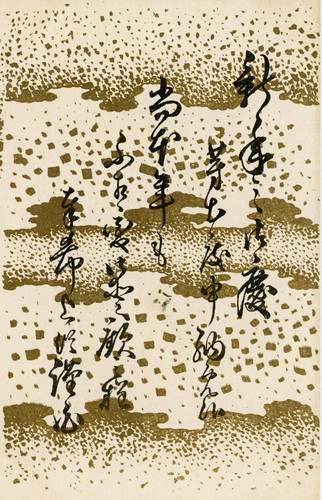 新年之御慶
芽出度申納候
尚本年も
不相変御愛顧之程
奉希上候謹